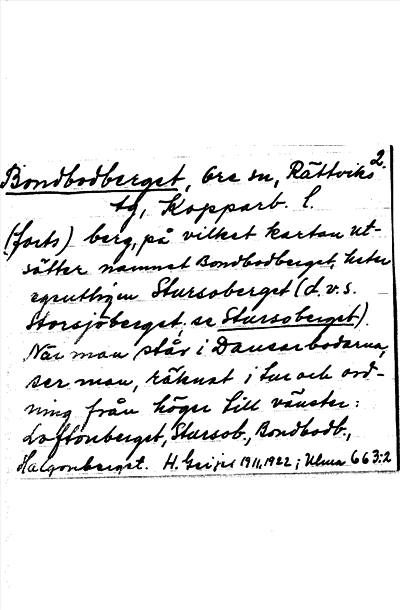 2.
Bondbodberget, Ore sn, Rättviks
tg, Kopparb. l.
(forts) berg, på vilket kartan ut-
sätter namnet Bondbodberget, heter
egentligen Stursoberget (d.v.s.
Storsjöberget, se Stursoberget).
När man står i Dansarbodarna,
ser man, räknat i tur och ord-
ning från höger till vänster:
Loftonberget, Stursob., Bondbodb.,
Halgonberget. H. Geijer 19 11, 1922; Ulma 663:2